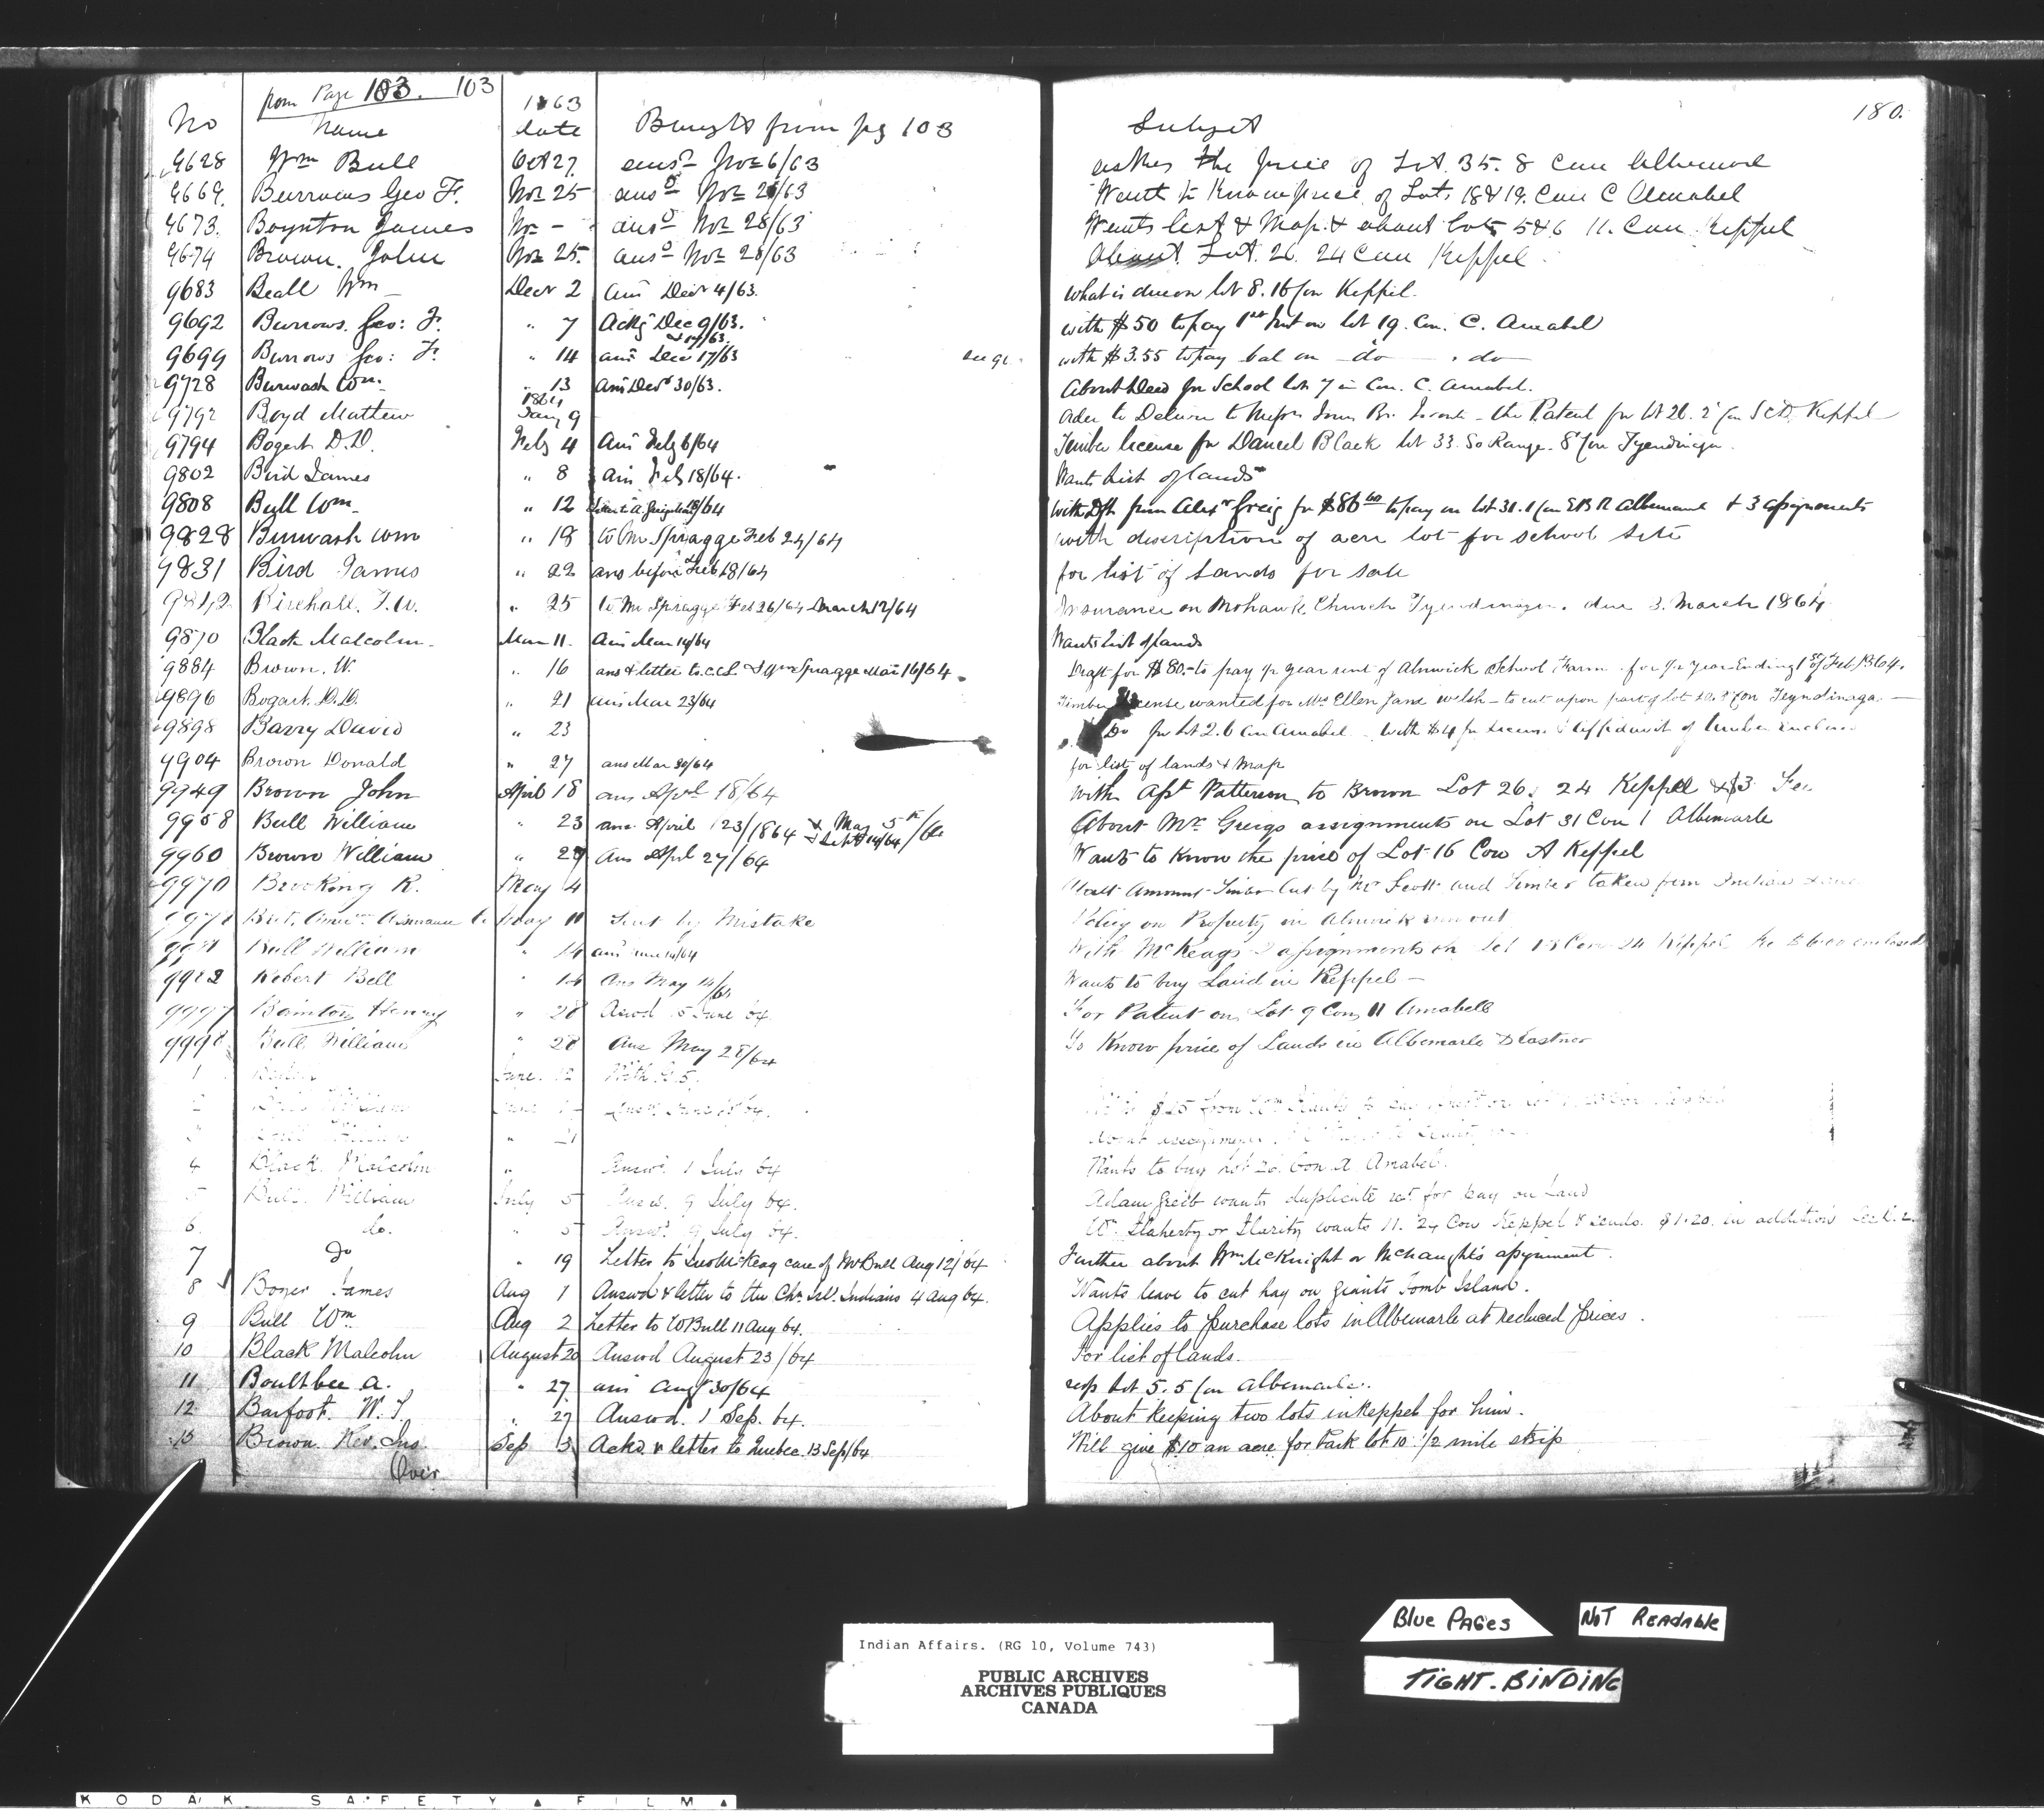 from Page 103. 103
180.
No Name 1863 date Brought from pg 103 Subject
9628 Wm Bull Oct 27. ansd Nov 6/63 asks the price of Lot. 35. 8 Con Albemarl
9669. Burrows Geo F. Nov 25 ansd Nov 28/63 Want to Know price of Lots 18 & 19. Con C Amabel
9673. Boynton James Nov - ansd Nov 28/63 Wants list & Map & about lots 5 & 6 11. Con Keppel
9674 Brown. John Nov 25. ansd Nov 28/63 About Lot. 26. 24 Con Keppel
9683 Beall Wm Decr 2 Ans Decr 4/63. What is due on lot 8. 16 Con Keppel.
9692 Burrows. Geo: F. " 7 Ackg Dec 9/63. with $50 to pay 1st Inst on lot 19. Con. C. Amabel
9699 Burrows Geo: F. " 14 ans Decr 17/63 with $3.55 to pay bal on do do
9728 Burwash Wm. " 13 Ans Decr 30/63. About Deed for School lot 7 in Con. C. Amabel.
9792 Boyd Mathew 1864 Jany 9 order to Deliver to the Patent for lot 20. 2 Con Keppel
9794 Bogert D.D. Feby 4 Ans Feby 6/64 Timber license for Daniel Black lot 33. So Range. 8 Con Tyendinaga.
9802 Bird James " 8 Ans Feb 18/64. Wants list of lands
9808 Bull Wm " 12 with Dft from Alexr Greig for $86 to pay on lot 31. 1 Con EBR Albemarle + 3 assignments
9828 Burwash Wm " 18 to Mr Spragge Feb 24/64 with description of acre lot for school site
9831 Bird James " 22 ans before Feb 18/64 for list of lands for sale
9842 Birchall. T.W. " 25 to Mr Spragge Feb 26/64 March 12/64 Insurance on Mohawk Church Tyendinaga. due 3. March 1864
9870 Black Malcolm. Mar 11. Ans Mar 14/64 Wants list of lands
9884 Brown. W. " 16 ans & letter to C.C.L. & Wm Spragge Mar 16/64. Draft for $80.- to pay yr year rent of Alnwick School Farm for yr year Ending 1st of Feb 1864.
9896 Bogart. D.D. " 21 ans Mar 23/64 Timber license wanted for Mrs Ellen Jane Welsh - to cut upon part of lot Con Tyendinaga.
9898 Barry David " 23 Do for lot 26 Con Amabel with $4 for license & affidavit of
9904 Brown Donald " 27 ans Mar 30/64 for list of lands & map
9949 Brown John April 18 ans April 18/64 With Asst Patterson to Brown Lot 26. 24 Keppel & $3 Fee
9958 Bull William " 23 ans. April 23/1864 & May 5th/64 & Sept 14/64 About Mr. Greigs assignments on Lot 31 Con 1 Albemarle
9960 Brown William " 27 Ans April 27/64 Wants to Know the price of Lot 16 Con A Keppel
9970 Brocking R. May 4 Amount Timber Cut by Mr Scott and Timber taken from Indian
May 11 Sent by Mistake Policy on Property in Alnwick run out
Bull William " 14 With McKeags assignments on Lot Con 24 Keppel enclosed
9982 Robert Bell " 14 Ans May 14/64 Wants to buy Land in Keppel -
9997 Bainton Henry " 28 Answd 5 June 64. For Patent on Lot 9 Con 11 Amabell
9998 Bull William " 28 Ans May 28/64 To Know price of Lands in Albemarle & Eastnor
1 June. 12 With
2 William $25 from
3 William about assignment
4 Black. Malcolm " Answd. 1 July 64 Wants to buy Lot 26. Con. A Amabel.
5 Bull. William July 5 Answd. 9 July 64. Adam Greib wants duplicate rect. for pay on Land
6. Do. " 5 Answd. 9 July 64. Wm. Flaherty or Flarity wants 11. 24 Con Keppel & sends. $1.20. in addition
7 Do " 19 Letter to Mckeag care of Wm Bull Aug 12/64 Further about Wm McKnight or McNaught's assignment.
8 Boyer James Aug 1 Answd & letter to the Chn Isld. Indians 4 Aug 64. Wants leave to cut hay on Giants Tomb Island.
9 Bull Wm Aug 2 Letter to W Bull 11 Aug 64. Applies to purchase lots in Albemarle at reduced prices.
10 Black Malcolm August 20 Answd August 23/64 For list of lands.
11 Boultbee A. " 27. ans Augt 30/64 resp lot 5. 5 Con Albemarle.
12 Barfoot. W. S. " 27 Answd. 1 Sep. 64. About keeping two lots in Keppel for him.
13 Brown. Rev. Jno. Sep 3 Ackd. & letter to Quebec. 13 Sep/64 Will give $10 an acre for Park lot 10 1/2 mile strip
Over
Blue PAGES
NOT READABLE
TIGHT. BINDING
Indian Affairs. (RG 10, Volume 743)
PUBLIC ARCHIVES
ARCHIVES PUBLIQUES
CANADA
KODAK SAFETY FILM